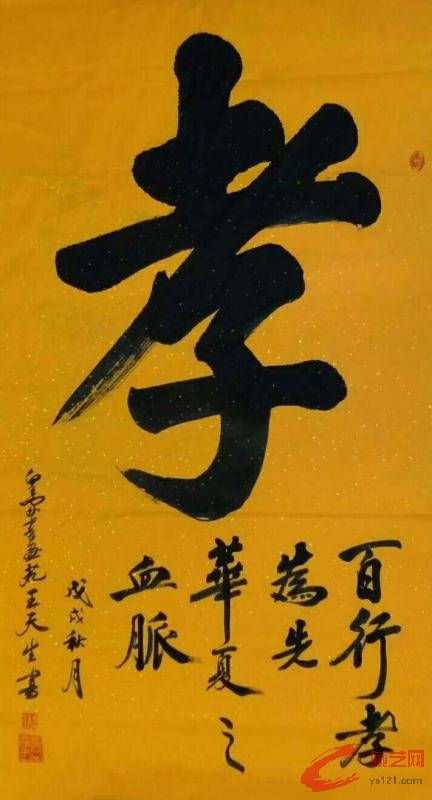 孝
百行孝
為先
華夏之
血脈
戊戌秋月
白雲書画苑王天生書
ys121.com